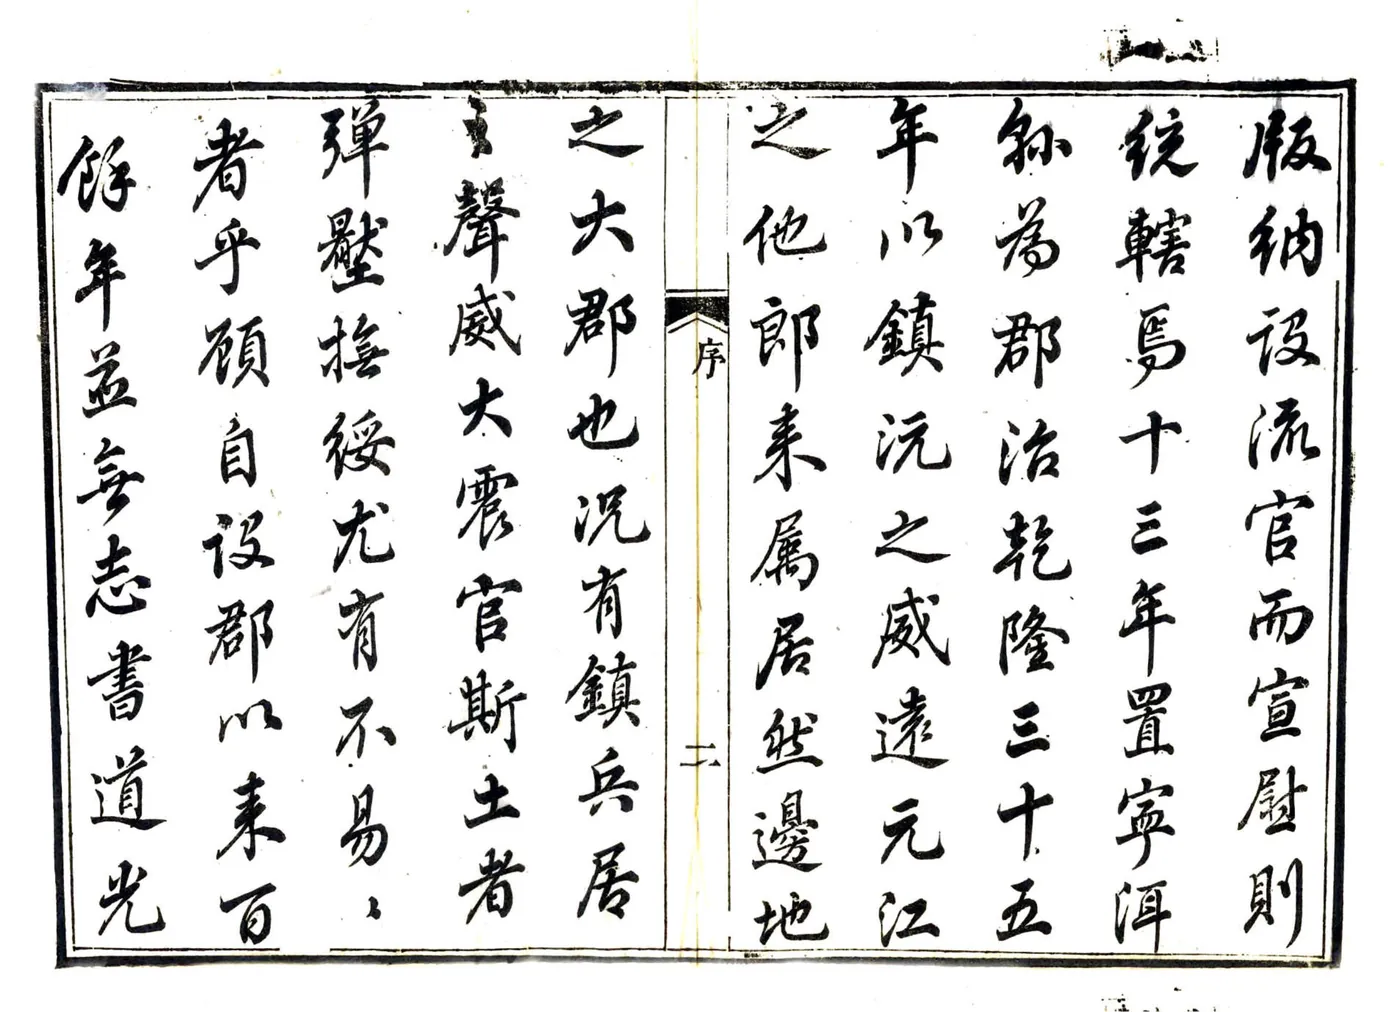 版納設流官而宣慰則
統轄焉十三年置寧洱
縣為郡治乾隆三十五
年以鎮沅之威遠元江
之他郎来属居然邊地
序
二
之大郡也况有鎮兵居
聲威大震官斯土者
彈壓撫綏尤有不易〻
者乎顧自設郡以来百
餘年並無志書道光